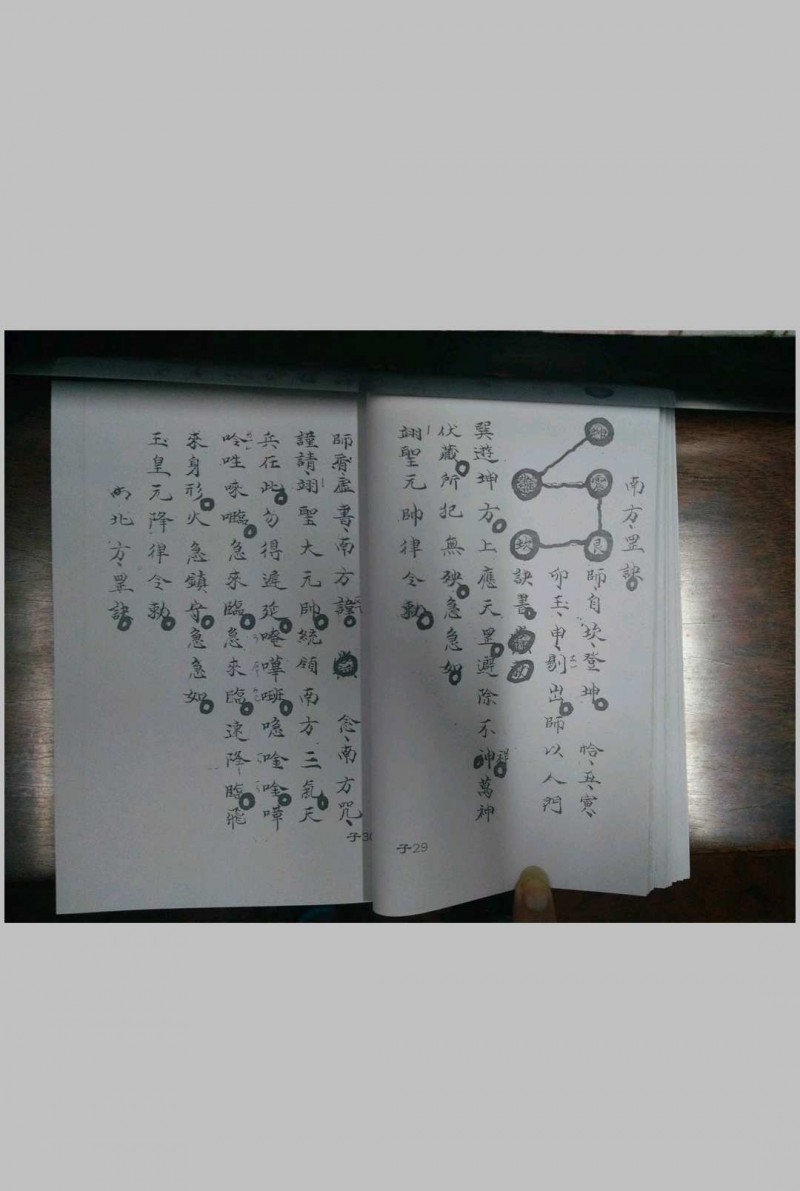 南方罡訣
坤
離
震
坎
艮
師自坎、登坤 恰、丑、寅、
卯玉、申、剔出師以人門
訣書
巽遊坤方上應天罡避除不神萬神
祥
伏藏所犯無殃急急如
翊聖元帥律令勅
子29
師齊虛書、南方諱 念、南方咒、
謹請、翊聖大元帥統領南方三氣天
兵在此勿得遲延唵嘩 噫唫唫嘩
唥 急來臨急來臨速降臨飛
來身形火急鎮守急急如
玉皇元降律令勅
北方罡訣
子30